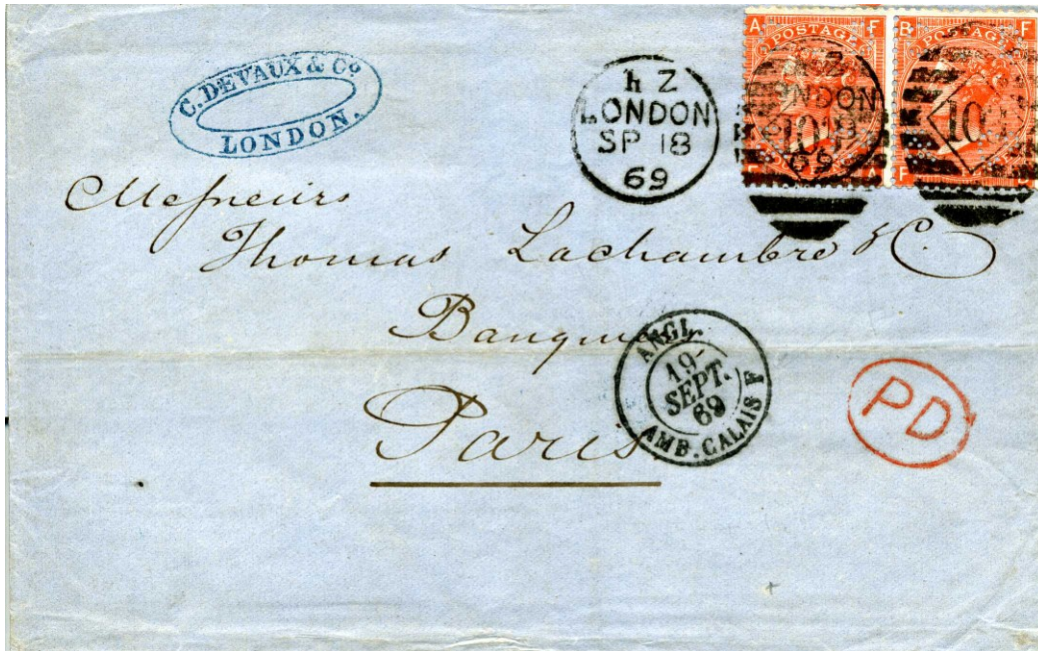 C. DEVAUX & Co
LONDON.
h Z
LONDON
SP 18
69
A F
POSTAGE
B F
POSTAGE
LONDON
69
Messieurs
Thomas Lachambre & C.
Banquiers
Paris
ANGL.
19
SEPT.
69
AMB. CALAIS F
PD